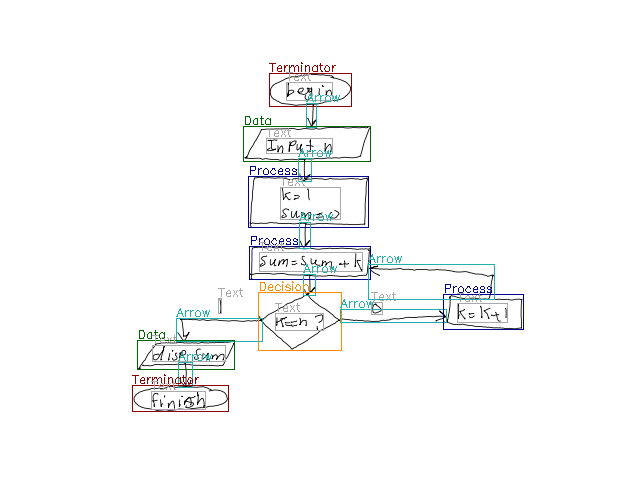 Terminator
Text
begin
Arrow
Data
Text
Input n
Arrow
Process
Text
k=1
sum=0
Arrow
Process
Text
sum=sum+k
Arrow
Arrow
Decision
Text
k=n?
Text
1
Arrow
Arrow
Text
0
Process
Text
k=k+1
Data
Text
disp sum
Arrow
Terminator
Text
finish